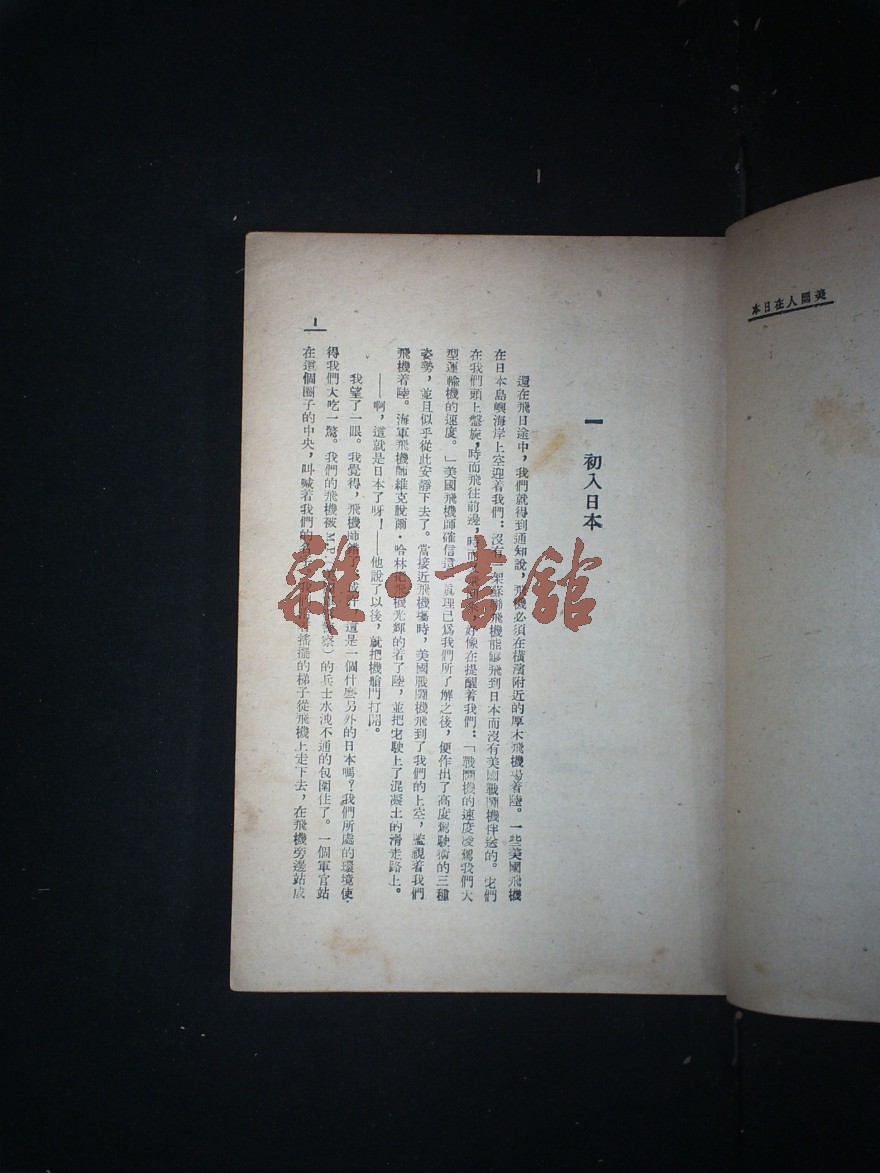 美國人在日本
一 初入日本
還在飛日途中，我們就得到通知說，飛機必須在橫濱附近的厚木飛機場着陸。一些美國飛機
在日本島嶼海岸上空迎着我們：沒有一架蘇聯飛機能够飛到日本而沒有美國戰鬪機伴送的。它們
在我們頭上盤旋，時而飛往前邊，時而 好像在提醒着我們：「戰鬪機的速度凌駕我們大
型運輸機的速度。」美國飛機師確信這 眞理已爲我們所了解之後，便作出了高度駕駛術的三種
姿勢，並且似乎從此安靜下去了。當接近飛機場時，美國戰鬪機飛到了我們的上空，監視着我們
飛機着陸。海軍飛機師維克脫爾·哈林把飛機光輝的着了陸，並把它駛上了混凝土的滑走路上。
——啊，這就是日本了呀！——他說了以後，就把機艙門打開。
我望了一眼。我覺得，飛機師錯了，或許，這是一個什麽另外的日本嗎？我們所處的環境使
得我們大吃一驚。我們的飛機被M.P. 察）的兵士水洩不通的包圍住了。一個軍官站
在這個圈子的中央，叫喊着我們的名 搖擺的梯子從飛機上走下去，在飛機旁邊站成
1
雜·書館